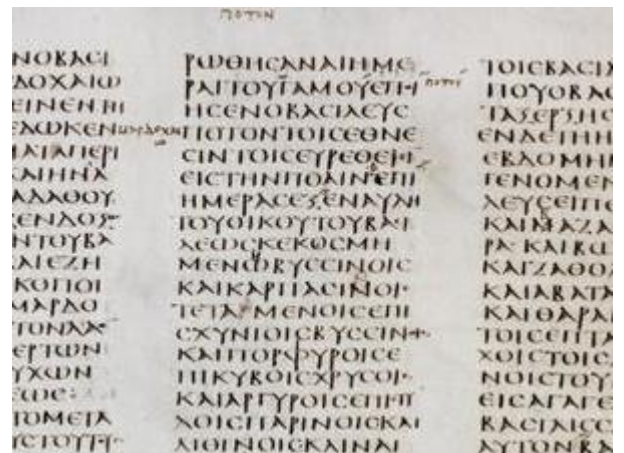 ΠΟΤΟΝ
ΝΟΒΑϹΙ
ΔΟΧΑΙΩ
ΕΙΝΕΝ
ΕΔΩΚΕΝ
ΚΑΙΗΝΑ
ΑΛΛΘΟΥ
ΞΕΝΔΟΣ
ΝΤΟΥΒΑ
ΑΙΕΖΗ
ΚΟΠΟΙ
ΜΑΡΔΟ
ΤΟΝΛΑ
ΕΡΤΩΝ
ΥΧΩΝ
ΕΩϹ
ΤΟΜΕΤΑ
ΡΩΘΗϹΑΝΑΙΗΜΕ
ΡΑΙΤΟΥΓΑΜΟΥΕΠ
ΗϹΕΝΟΒΑϹΙΛΕΥϹ
ΠΟΤΟΝΤΟΙϹΕΘΝΕ
ϹΙΝΤΟΙϹΕΥΡΕΘΕΙ
ΕΙϹΤΗΝΠΟΛΙΝΕΠΙ
ΗΜΕΡΑϹΕΞΕΝΑΥΛΗ
ΤΟΥΟΙΚΟΥΤΟΥΒΑϹΙ
ΛΕΩϹΚΕΚΟϹΜΗ
ΜΕΝΩΒΥϹϹΙΝΟΙϹ
ΚΑΙΚΑΡΠΑϹΙΝΟΙϹ
ΤΕΤΑΜΕΝΟΙϹΕΠΙ
ϹΧΥΝΙΟΙϹΒΥϹϹΙΝ
ΚΑΙΠΟΡΦΥΡΟΙϹΕ
ΠΙΚΥΒΟΙϹΧΡΥϹΟΙϹ
ΚΑΙΑΡΓΥΡΟΙϹΕΠΙ
ΛΟΙϹΠΑΡΙΝΟΙϹΚΑΙ
ΛΙΘΙΝΟΙϹΚΑΙΝΑΙ
ΤΟΙϹΒΑϹΙΛ
ΠΟΥΟΒΑϹ
ΕΝΔΕΤΗΗ
ΕΒΔΟΜΗ
ΓΕΝΟΜΕΝ
ΛΕΥϹΕΙΠΕ
ΚΑΙΜΑΖΑ
ΡΑΚΑΙΒΩ
ΚΑΙΖΑΘΟ
ΚΑΙΑΒΑΤΑ
ΚΑΙΘΑΡΑ
ΤΟΙϹΕΠΤΑ
ΧΟΙϹΤΟΙϹ
ΝΟΙϹΤΟΥ
ΕΙϹΑΓΑΓΕ
ΒΑϹΙΛΙϹϹ
ΑΥΤΟΝΒΑ